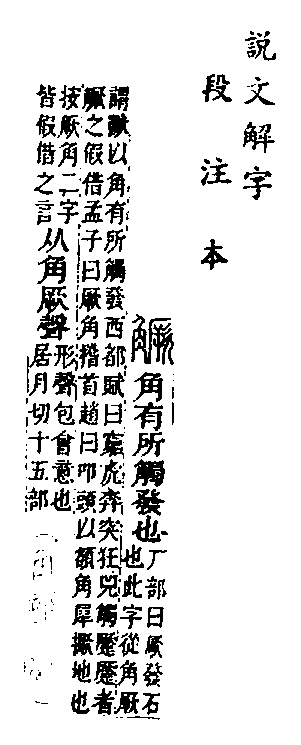 説文解字
段注本
𧤼角有所觸發也
厂部曰厥發石
也此字從角厥
謂獸以角有所觸發西都賦曰窮虎奔突狂兕觸蹷蹷者
𧤼之假借孟子曰厥角稽首趙曰叩頭以額角犀撅地也
按厥角二字
皆假借之言
从角厥聲
形聲包會意也
居月切十五部